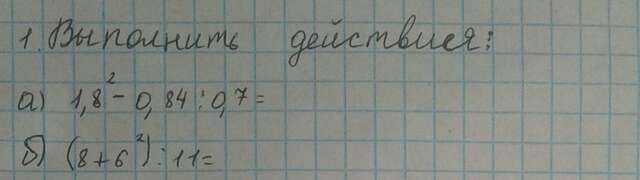 1. Выполнить действия:
а) 1,8² - 0,84 : 0,7 =
б) (8 + 6²) : 11 =